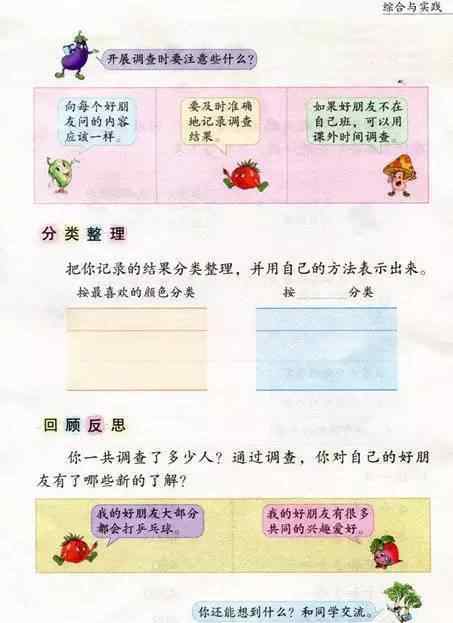 综合与实践
开展调查时要注意些什么?
向每个好朋
友问的内容
应该一样。
要及时准确
地记录调查
结果。
如果好朋友不在
自己班,可以用
课外时间调查。
分类整理
把你记录的结果分类整理,并用自己的方法表示出来。
按最喜欢的颜色分类
按______分类
回顾反思
你一共调查了多少人?通过调查,你对自己的好朋
友有了哪些新的了解?
我的好朋友大部分
都会打乒乓球。
我的好朋友有很多
共同的兴趣爱好。
你还能想到什么?和同学交流。